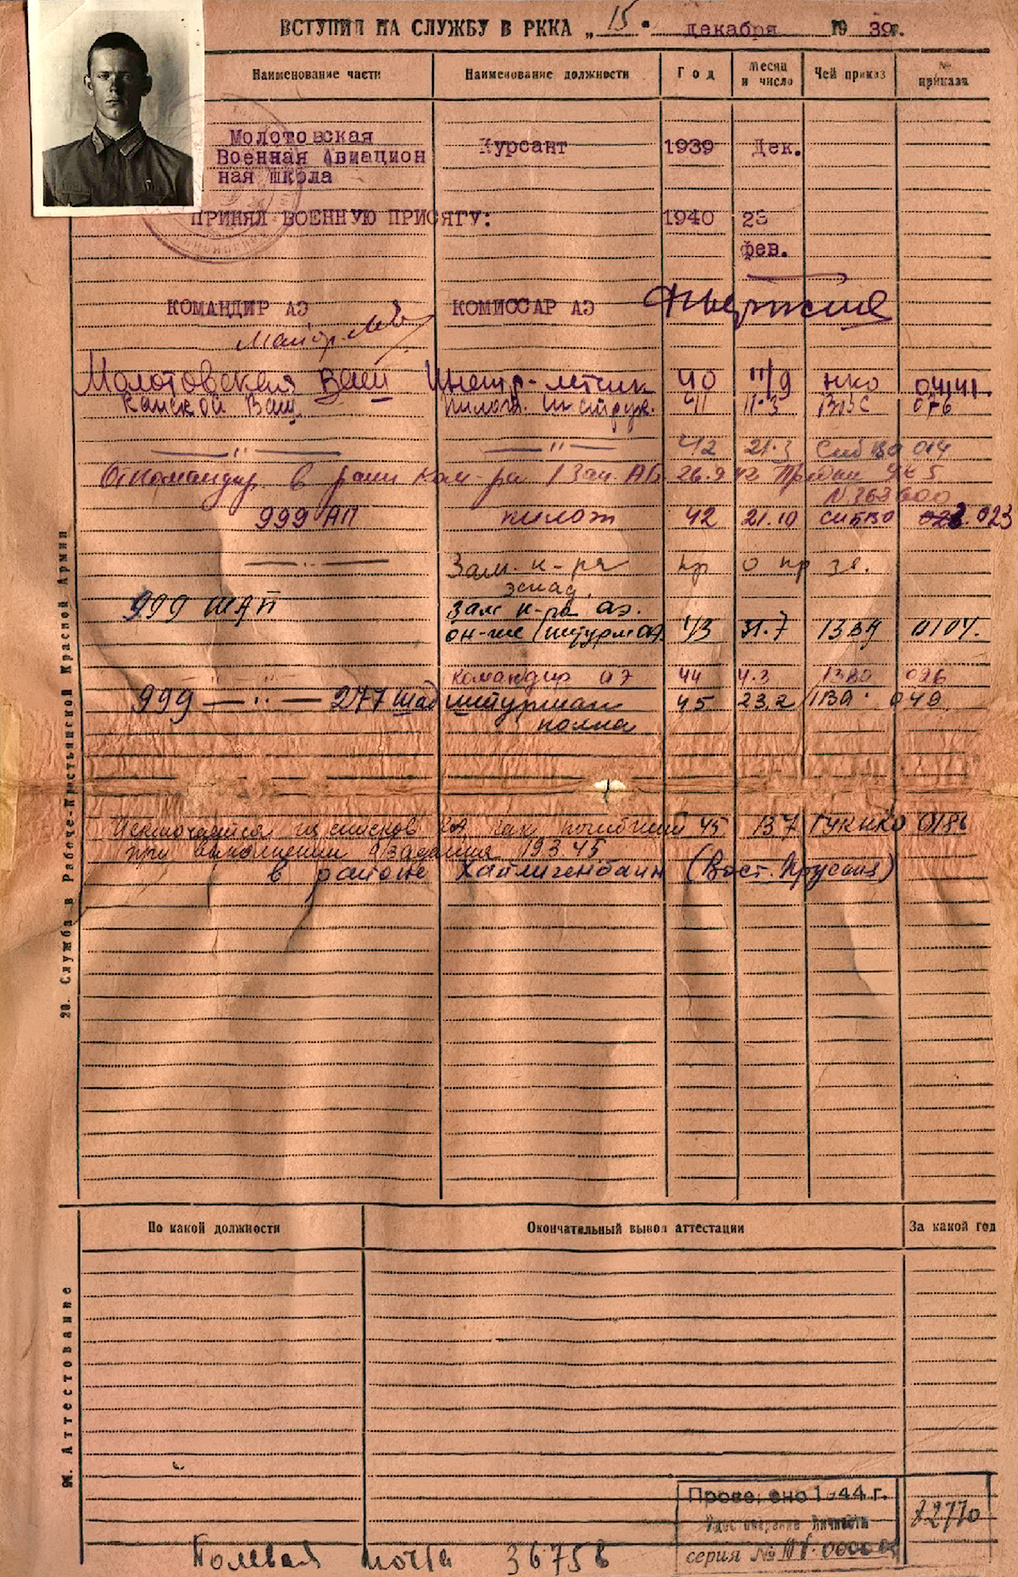 ВСТУПИЛ НА СЛУЖБУ В РККА „ 15 " декабря 1939г.
Наименование части Наименование должности Год Месяц и число Чей приказ № приказа
Молотовская Курсант 1939 Дек.
Военная Авиацион
ная школа
ПРИНЯЛ ВОЕННУЮ ПРИСЯГУ: 1940 23
фев.
КОМАНДИР АЭ КОМИССАР АЭ
Майор
Молотовская ВАШ Инстр-летчик 40 11/9 НКО 04141.
Канской Ваш. пилот. инструк. 41 11.3
—— " —— —— " —— 42 21.3 СибВО 014
Откомандир. в расп ком-ра 1 Зап. АБ 26.9 42
999 АП пилот 42 21.10 СИБВО 023
—— " —— Зам. к-ра
эскад.
999 ШАП Зам к-ра аэ.
он-же штурм аэ 43 31.7 1ВА 0104.
командир аэ 44 4.3 026
999 —— " —— 277 шад штурман 45 23.2 1ВА 049
полка
Исключается из списков КА, как погибший 45 13.7 ГУК НКО 0186
при выполнении б/задания 19 3 45
в районе Хайлигенбаин (Вост. Пруссия)
20. Служба в Рабоче-Крестьянской Красной Армии
По какой должности Окончательный вывод аттестации За какой год
Аттестование
Проверено 1944 г.
Удостоверение личности
серия №
Полевая почта 36758